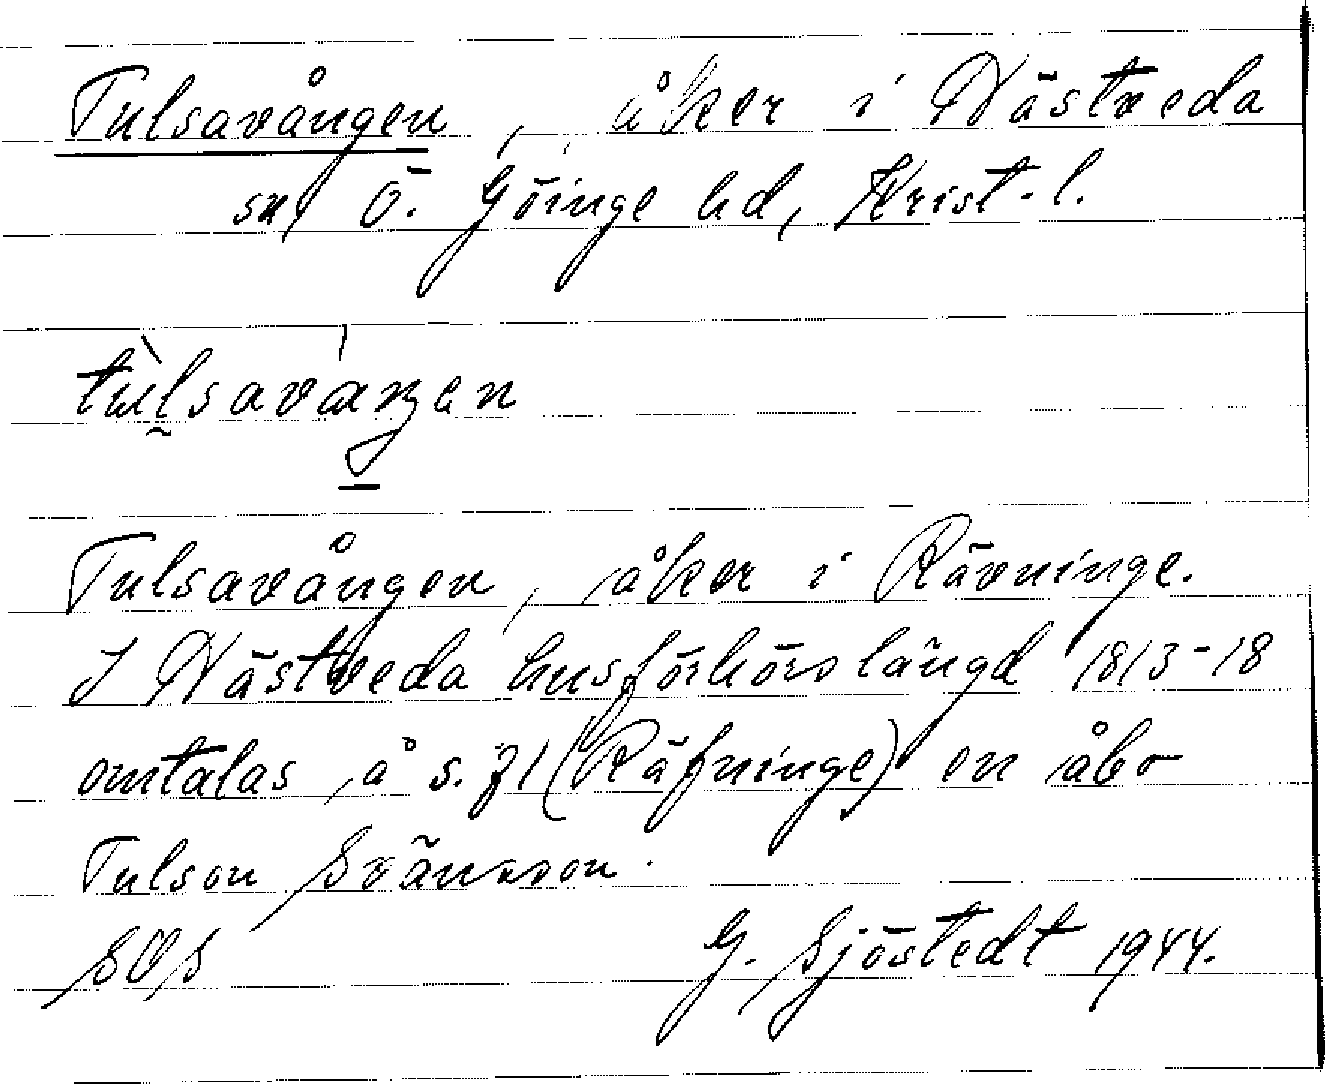 Tulsavången, åker i Västveda
sn, Ö. Göinge hd, Krist-l.
tùlsaváŋen
Tulsavången, åker i Rävninge.
I Västveda husförhörslängd 1813-18
omtalas å s. 71 (Räfninge) en åbo
Tulson Svänsson.
SOS
G. Sjöstedt 1944.